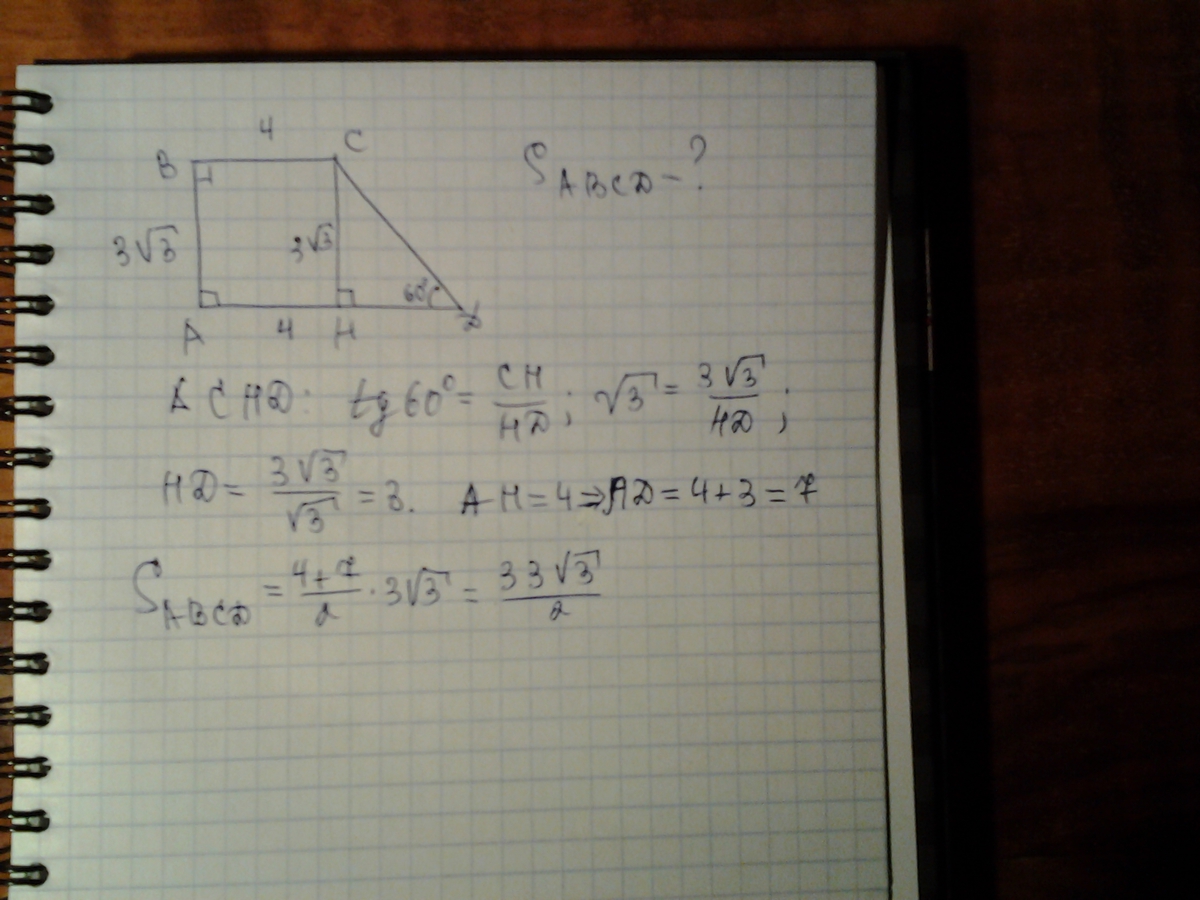 4
B C
S_ABCD - ?
3√3 3√3
60°
A 4 H D
Δ CHD: tg 60° = CH/HD; √3 = 3√3/HD;
HD = 3√3/√3 = 3. AH = 4 ⇒ AD = 4 + 3 = 7
S_ABCD = (4+7)/2 · 3√3 = 33√3/2